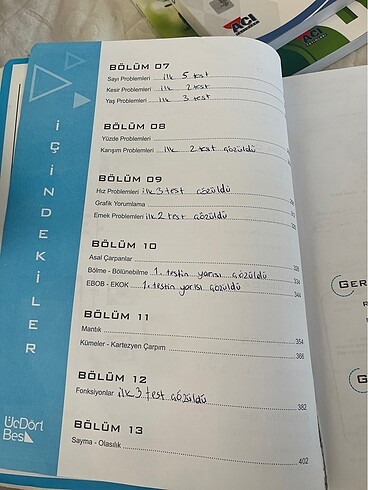 BÖLÜM 07
Sayı Problemleri ilk 5 test
Kesir Problemleri ilk 2 test
Yaş Problemleri ilk 3 test
BÖLÜM 08
Yüzde Problemleri
Karışım Problemleri ilk 2 test çözüldü
BÖLÜM 09
Hız Problemleri ilk 3 test çözüldü
Grafik Yorumlama
Emek Problemleri ilk 2 test çözüldü
BÖLÜM 10
Asal Çarpanlar
Bölme - Bölünebilme 1. testin yarısı çözüldü 334
EBOB - EKOK 1. testin yarısı çözüldü 344
BÖLÜM 11
Mantık 354
Kümeler - Kartezyen Çarpım 366
BÖLÜM 12
Fonksiyonlar ilk 3 test çözüldü 382
BÖLÜM 13
Sayma - Olasılık 402
İÇİNDEKİLER
ÜçDört
Beş
AÇI
GER
G